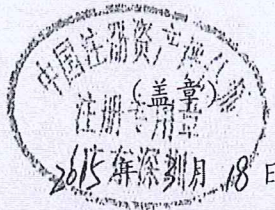 中国注册资产评估师
(盖章)
注册专用章
2015年深圳月18日